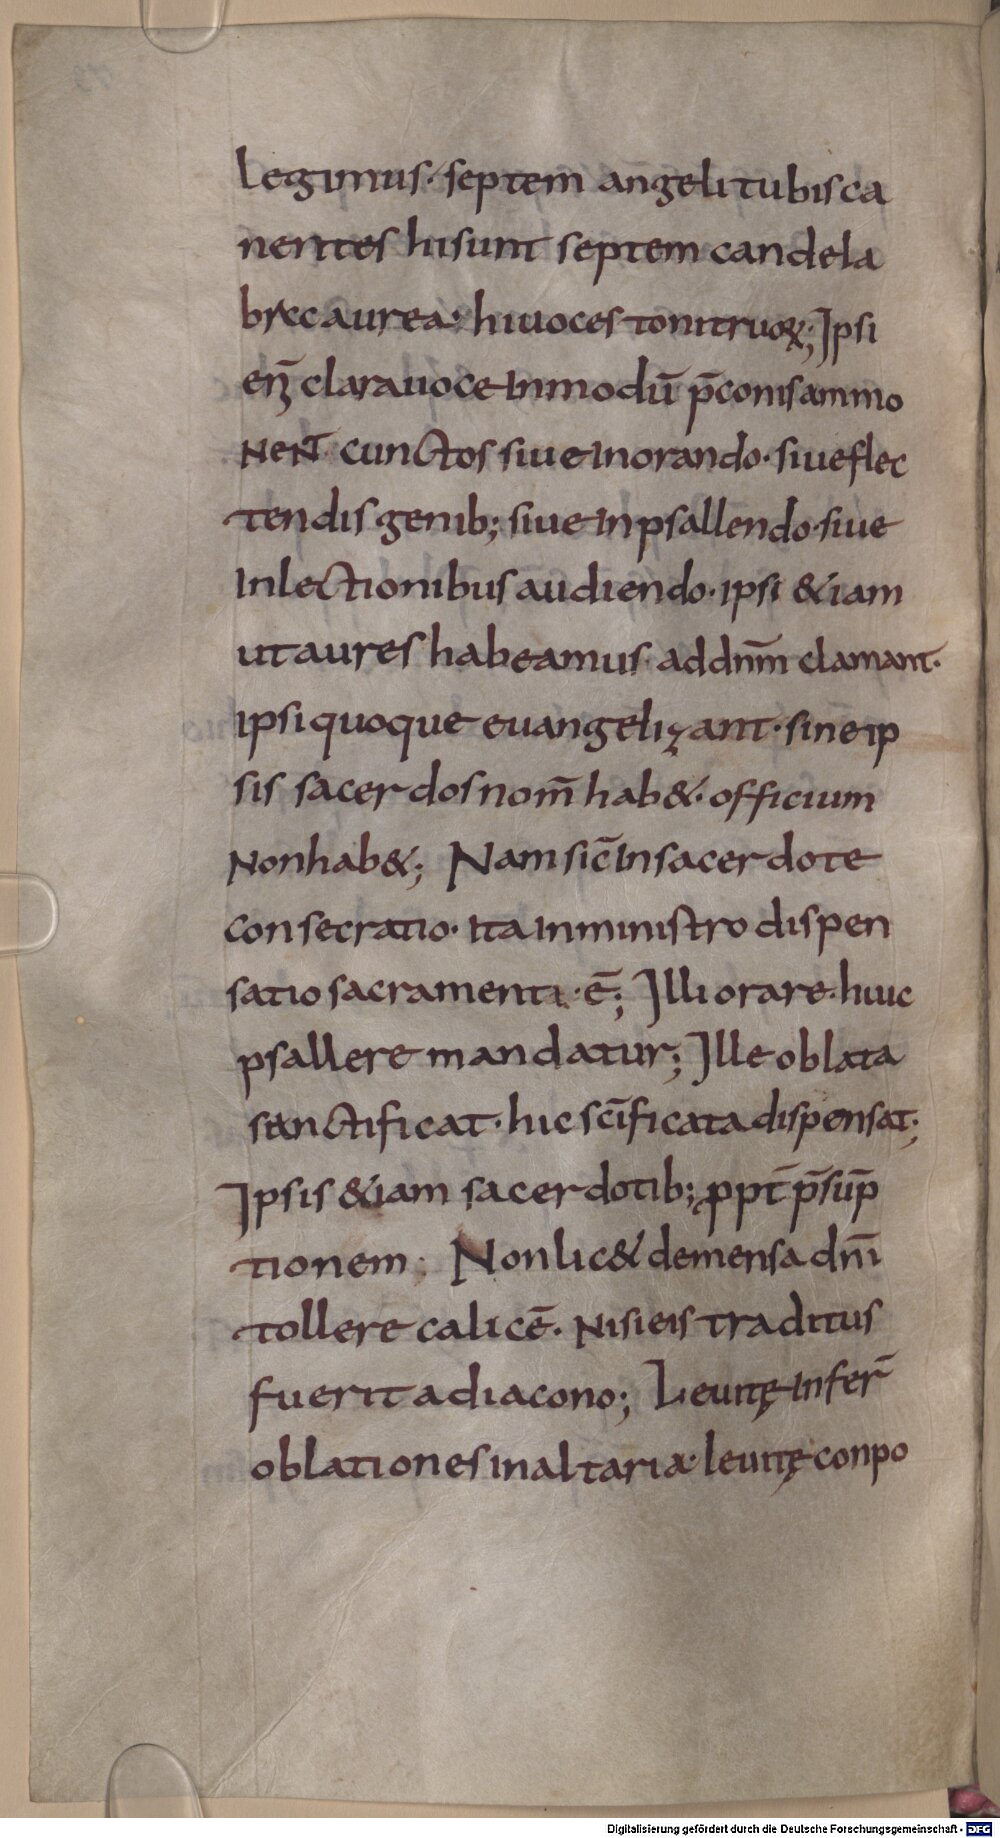 legimus· septem angeli tubis ca
nentes hi sunt septem candela
bra aurea· hi uoces tonitruoꝝ; Ipsi
enī clara uoce in modū p̄conis ammo
neNT cunctos siue in orando· siue flec
tendis genib; siue in psallendo· siue
in lectionibus audiendo· ipsi &iam
ut aures habeamus ad dnm̄ clamant·
ipsi quoque euangelizant· sine ip
sis sacerdos nom̄ hab&· officium
Non hab&; Nam sic̄ in sacerdote
consecratio· ita in ministro dispen
satio sacramenti·ē; Illi orare· huic
psallere mandatur; Ille oblata
sanctificat· hic sc̄ificata dispensat;
Ipsis &iam sacerdotib; ꝓpt̄ p̄sūp
tionem; Non lic& de mensa dnī
tollere calicē· Nisi eis traditus
fuerit a diacono; Leuitę infer̄
oblationes in altaria· leuitę conpo
Digitalisierung gefördert durch die Deutsche Forschungsgemeinschaft - DFG